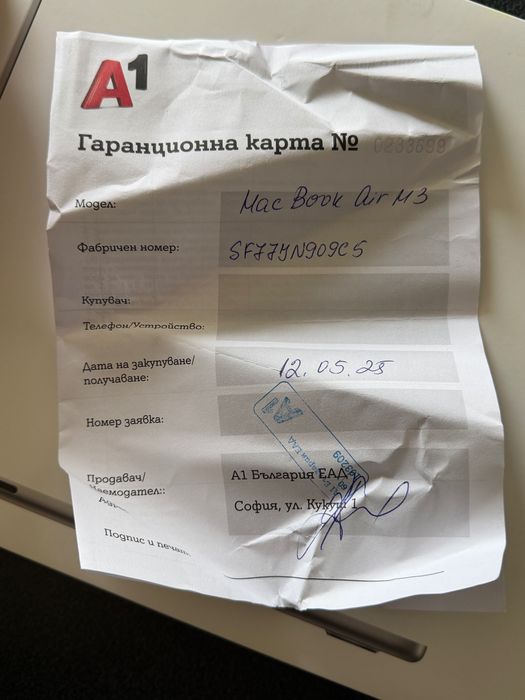 A1
Гаранционна карта № 0233699
Модел: MacBook Air M3
Фабричен номер:
Купувач:
Телефон/Устройство:
Дата на закупуване/ 12.05.25
получаване:
Номер заявка:
Продавач/ А1 България ЕАД
София, ул. Кукуш 1
Подпис и